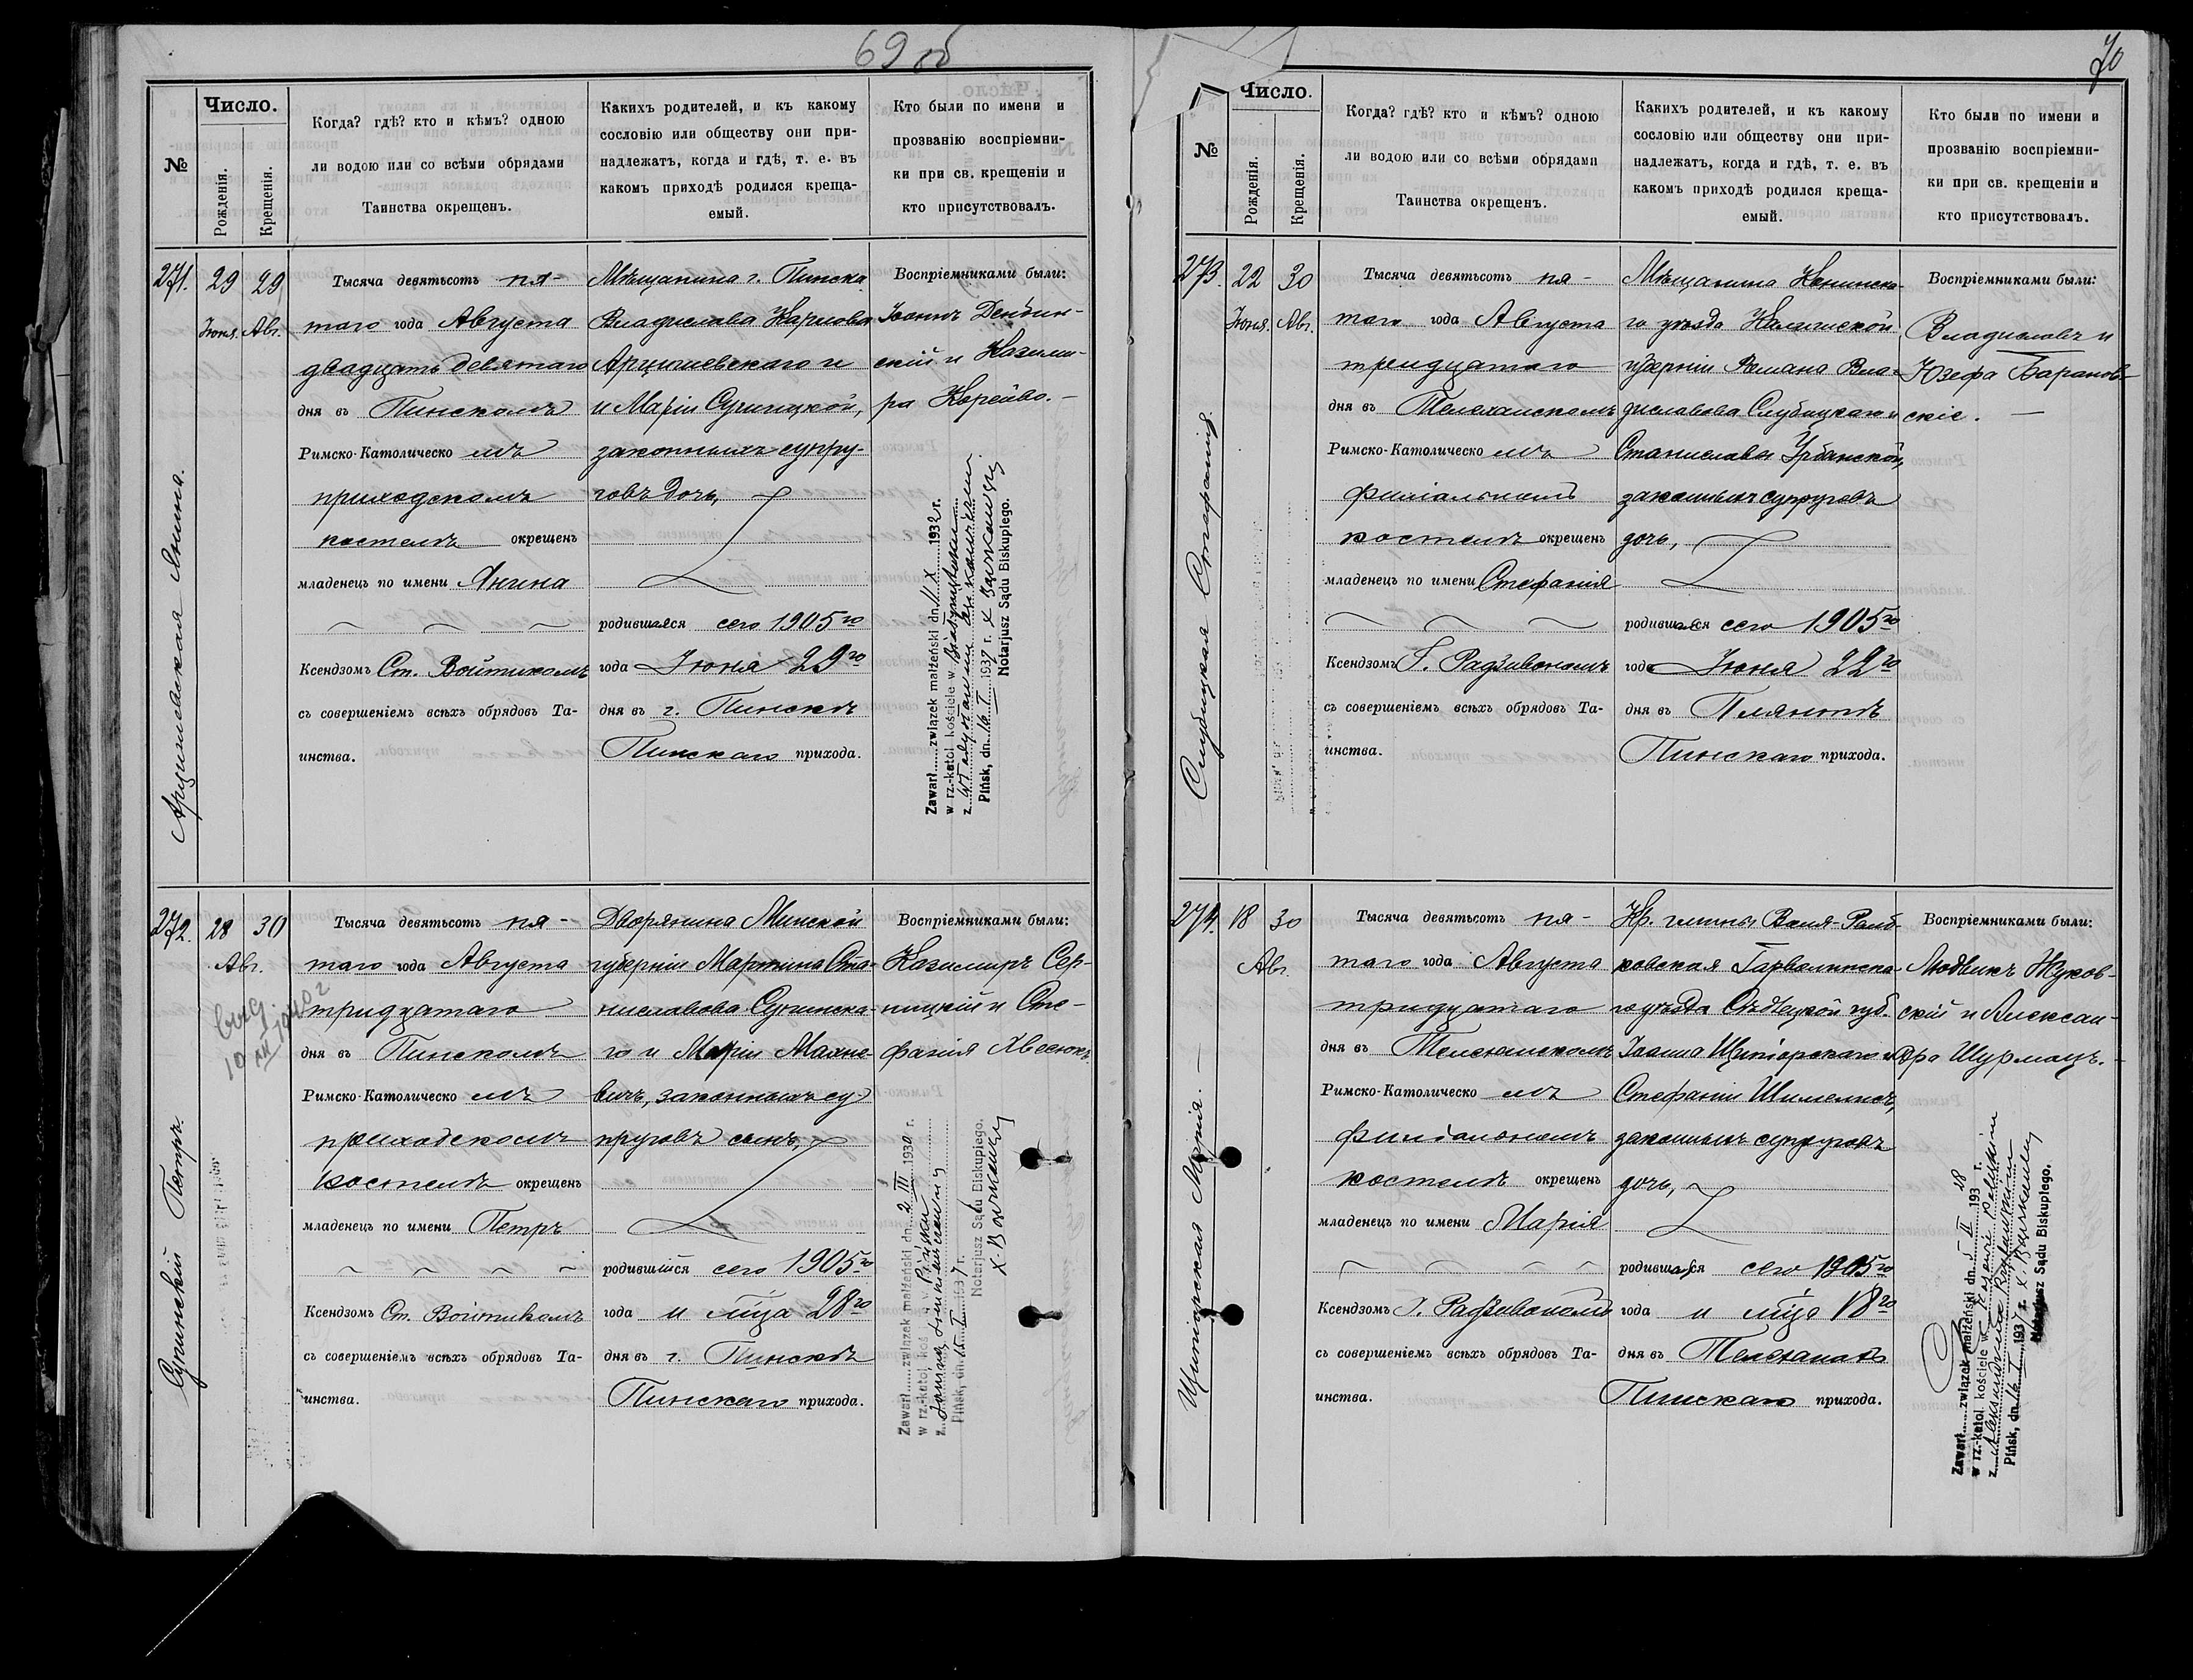 69 об
№
Число.
Рожденія.
Крещенія.
Когда? гдѣ? кто и кѣмъ? одною
ли водою или со всѣми обрядами
Таинства окрещенъ.
Какихъ родителей, и къ какому
сословію или обществу они при-
надлежатъ, когда и гдѣ, т. е. въ
какомъ приходѣ родился креща-
емый.
Кто были по имени и
прозванію воспріемни-
ки при св. крещеніи и
кто присутствовалъ.
271.
29
Іюня.
29
Авг.
Арцишевская Янина.
Тысяча девятьсотъ пя-
таго года Августа
двадцать девятаго
дня въ Пинскомъ
Римско-Католическо мъ
приходскомъ
костелѣ окрещенъ
младенецъ по имени Янина
Ксендзомъ Ст. Войтикомъ
съ совершеніемъ всѣхъ обрядовъ Та-
инства.
Мѣщанина г. Пинска
Владислава Карлова
Арцишевскаго и
и Маріи
законныхъ супру-
говъ дочь,
родившаяся сего 1905го
года Іюня 29го
дня въ г. Пинскѣ
Пинскаго прихода.
Воспріемниками были:
Іоаннъ Дембин-
скій и Казими-
ра Корейво. -
Zawarł......związek małżeński dn. 11 X 1932 r.
w rz.-katol. kościele w
z
Pińsk, dn. 16 I 1937 r. X
Notarjusz Sądu Biskupiego.
272.
28
30
Авг.
10 XII 1940 г
Петръ.
Тысяча девятьсотъ пя-
таго года Августа
тридцатаго
дня въ Пинскомъ
Римско-Католическо мъ
приходскомъ
костелѣ окрещенъ
младенецъ по имени Петръ
Ксендзомъ Ст. Войтикомъ
съ совершеніемъ всѣхъ обрядовъ Та-
инства.
Дворянина Минской
губерніи Мартина Ста-
ниславова
го и Маріи Махне-
вичъ, законныхъ су-
пруговъ сынъ,
родившійся сего 1905го
года и мѣсца 28го
дня въ г. Пинскѣ
Пинскаго прихода.
Воспріемниками были:
Казимиръ Сер-
ницкій и Сте-
фанія
Zawarł......związek małżeński dn. 2 III 1930 r.
w rz.-katol. kość w Pińsku
z
Pińsk, dn. 15 I 1937 r.
Notarjusz Sądu Biskupiego.
70
№
Число.
Рожденія.
Крещенія.
Когда? гдѣ? кто и кѣмъ? одною
ли водою или со всѣми обрядами
Таинства окрещенъ.
Какихъ родителей, и къ какому
сословію или обществу они при-
надлежатъ, когда и гдѣ, т. е. въ
какомъ приходѣ родился креща-
емый.
Кто были по имени и
прозванію воспріемни-
ки при св. крещеніи и
кто присутствовалъ.
273.
22
Іюня.
30
Авг.
Слубицкая Стефанія.
Тысяча девятьсотъ пя-
таго года Августа
тридцатаго
дня въ Телеханскомъ
Римско-Католическо мъ
филіальномъ
костелѣ окрещенъ
младенецъ по имени Стефанія
Ксендзомъ I. Радзивономъ
съ совершеніемъ всѣхъ обрядовъ Та-
инства.
Мѣщанина Конинска-
го уѣзда Калишской
губерніи Романа Вла-
диславова Слубицкаго и
Станиславы Урбанской,
законныхъ супруговъ
дочь,
родившаяся сего 1905го
года Іюня 22го
дня въ Плянтѣ
Пинскаго прихода.
Воспріемниками были:
Владиславъ и
Юзефа Баранов-
скіе. -
274.
18
30
Авг.
Щипіорская Марія. -
Тысяча девятьсотъ пя-
таго года Августа
тридцатаго
дня въ Телеханскомъ
Римско-Католическо мъ
филіальномъ
костелѣ окрещенъ
младенецъ по имени Марія
Ксендзомъ I. Радзивономъ
съ совершеніемъ всѣхъ обрядовъ Та-
инства.
Кр. гмины Воля-Ремб-
ковская Гарволинска-
го уѣзда Сѣдлецкой губ.
Іоанна Щипіорскаго и
Стефаніи
законныхъ супруговъ
дочь,
родившаяся сего 1905го
года и мѣсца 18го
дня въ Телеханахъ
Пинскаго прихода.
Воспріемниками были:
Людвикъ Жуков-
скій и Алексан-
дра Шурмацъ. -
Zawarł......związek małżeński dn. 5 II 1938 r.
w rz.-katol. kościele w
z Aleksandrem
Pińsk, dn. 16 I 1937 r. X.
Notarjusz Sądu Biskupiego.